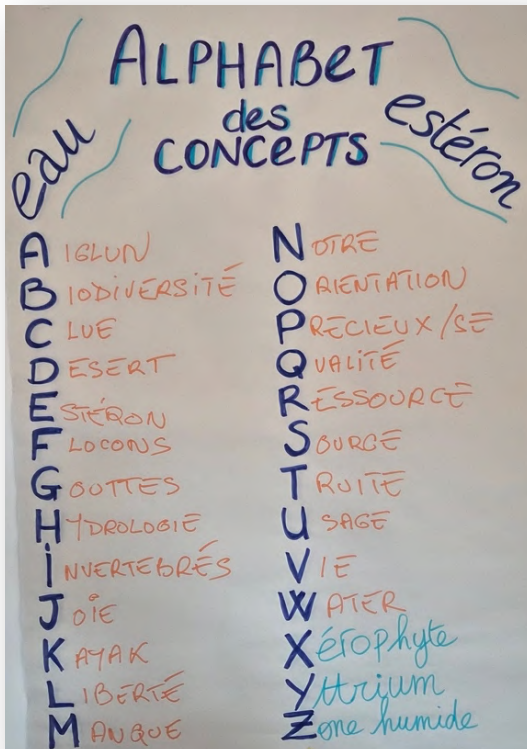 ALPHABET
des
CONCEPTS
eau
estéron
AIGLUN
BIODIVERSITÉ
CLUE
DESERT
ESTÉRON
FLOCONS
GOUTTES
HYDROLOGIE
INVERTEBRÉS
JOIE
KAYAK
LIBERTÉ
MANQUE
NOTRE
ORIENTATION
PRECIEUX/SE
QUALITÉ
RESSOURCE
SOURCE
TRUITE
USAGE
VIE
WATER
Xérophyte
Yttrium
Zone humide